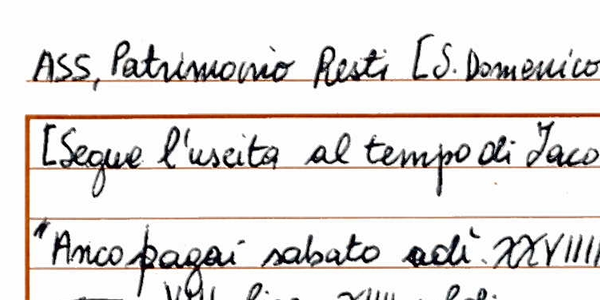 ASS, Patrimonio Resti [S. Domenico
[Segue l'uscita al tempo di Jaco
"Anco pagai sabato adì XXVIIII